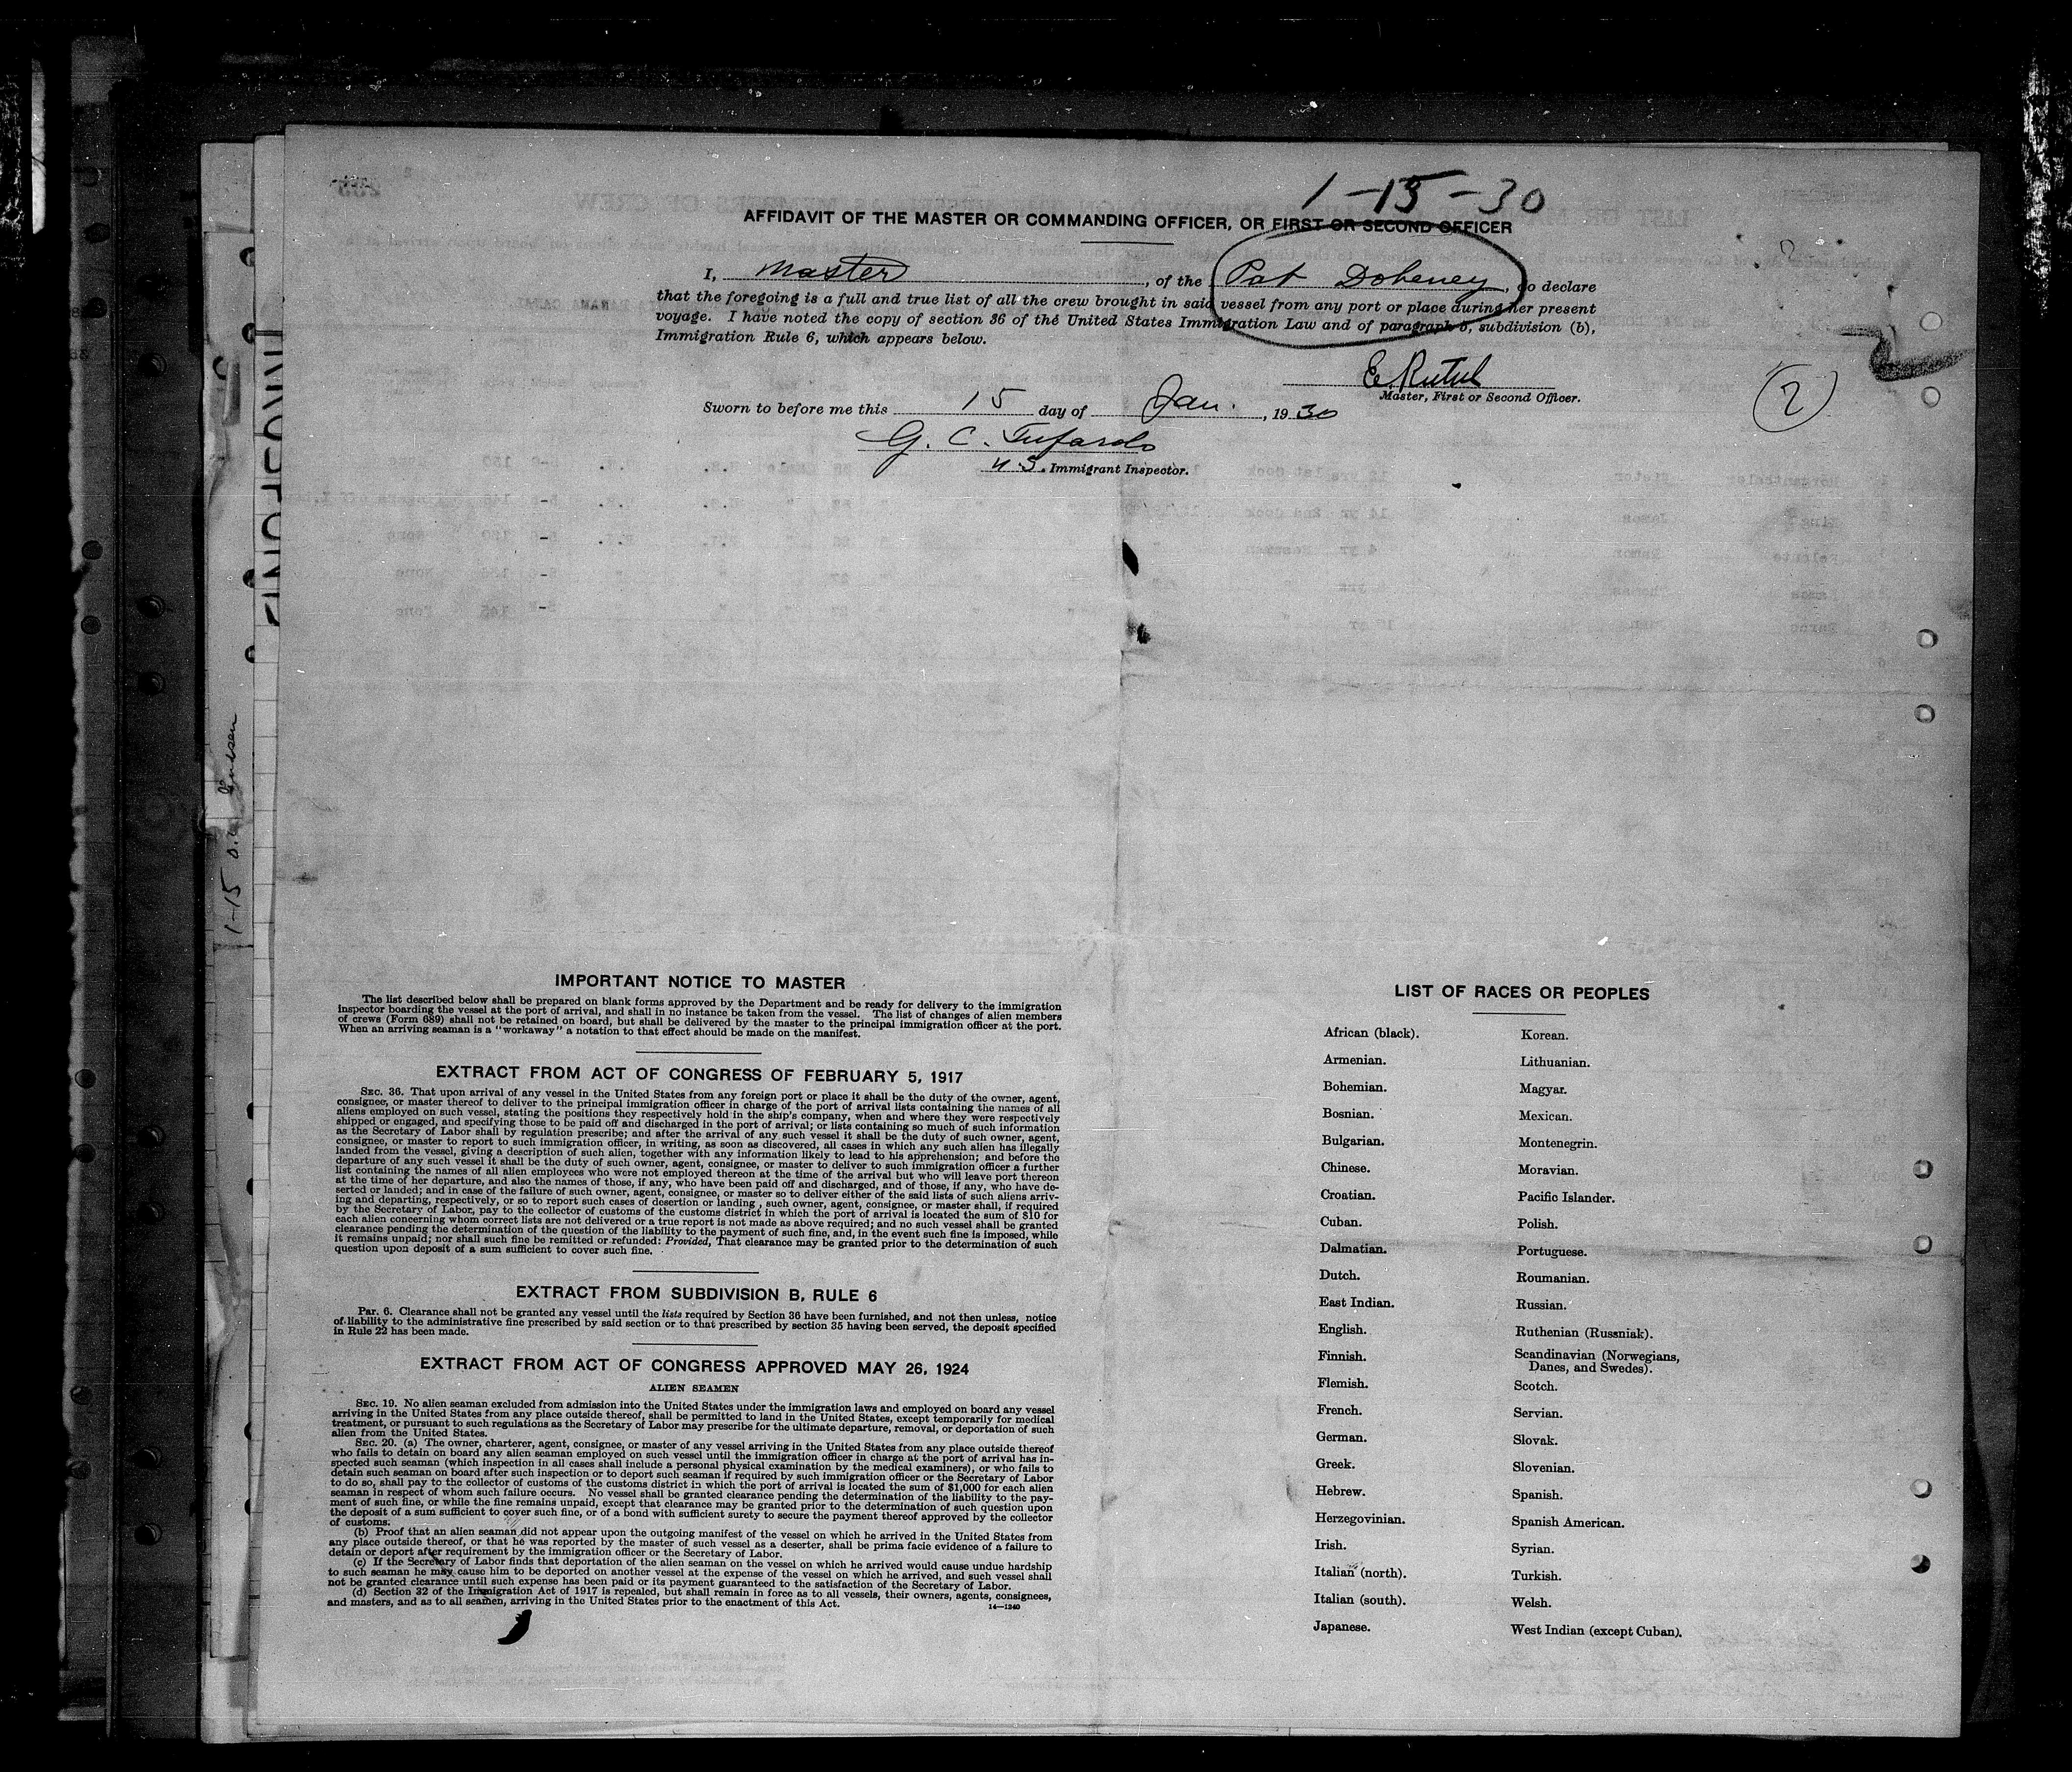 1-15-30
AFFIDAVIT OF THE MASTER OR COMMANDING OFFICER, OR FIRST OR SECOND OFFICER
I, Master, of the Pat Doheney, do declare
that the foregoing is a full and true list of all the crew brought in said vessel from any port or place during her present
voyage. I have noted the copy of section 36 of the United States Immigration Law and of paragraph 5, subdivision (b),
Immigration Rule 6, which appears below.
E. Rutul
Master, First or Second Officer.
(2)
Sworn to before me this 15 day of Jan., 1930
G. C. Tufarolo
U.S. Immigrant Inspector.
1-15
IMPORTANT NOTICE TO MASTER
The list described below shall be prepared on blank forms approved by the Department and be ready for delivery to the immigration
inspector boarding the vessel at the port of arrival, and shall in no instance be taken from the vessel. The list of changes of alien members
of crews (Form 689) shall not be retained on board, but shall be delivered by the master to the principal immigration officer at the port.
When an arriving seaman is a "workaway" a notation to that effect should be made on the manifest.
EXTRACT FROM ACT OF CONGRESS OF FEBRUARY 5, 1917
SEC. 36. That upon arrival of any vessel in the United States from any foreign port or place it shall be the duty of the owner, agent,
consignee, or master thereof to deliver to the principal immigration officer in charge of the port of arrival lists containing the names of all
aliens employed on such vessel, stating the positions they respectively hold in the ship's company, when and where they were respectively
shipped or engaged, and specifying those to be paid off and discharged in the port of arrival; or lists containing so much of such information
as the Secretary of Labor shall by regulation prescribe; and after the arrival of any such vessel it shall be the duty of such owner, agent,
consignee, or master to report to such immigration officer, in writing, as soon as discovered, all cases in which any such alien has illegally
landed from the vessel, giving a description of such alien, together with any information likely to lead to his apprehension; and before the
departure of any such vessel it shall be the duty of such owner, agent, consignee, or master to deliver to such immigration officer a further
list containing the names of all alien employees who were not employed thereon at the time of the arrival but who will leave port thereon
at the time of her departure, and also the names of those, if any, who have been paid off and discharged, and of those, if any, who have de-
serted or landed; and in case of the failure of such owner, agent, consignee, or master so to deliver either of the said lists of such aliens arriv-
ing and departing, respectively, or so to report such cases of desertion or landing, such owner, agent, consignee, or master shall, if required
by the Secretary of Labor, pay to the collector of customs of the customs district in which the port of arrival is located the sum of $10 for
each alien concerning whom correct lists are not delivered or a true report is not made as above required; and no such vessel shall be granted
clearance pending the determination of the question of the liability to the payment of such fine, and, in the event such fine is imposed, while
it remains unpaid; nor shall such fine be remitted or refunded: Provided, That clearance may be granted prior to the determination of such
question upon deposit of a sum sufficient to cover such fine.
EXTRACT FROM SUBDIVISION B, RULE 6
Par. 6. Clearance shall not be granted any vessel until the lists required by Section 36 have been furnished, and not then unless, notice
of liability to the administrative fine prescribed by said section or to that prescribed by section 35 having been served, the deposit specified
in Rule 22 has been made.
EXTRACT FROM ACT OF CONGRESS APPROVED MAY 26, 1924
ALIEN SEAMEN
SEC. 19. No alien seaman excluded from admission into the United States under the immigration laws and employed on board any vessel
arriving in the United States from any place outside thereof, shall be permitted to land in the United States, except temporarily for medical
treatment, or pursuant to such regulations as the Secretary of Labor may prescribe for the ultimate departure, removal, or deportation of such
alien from the United States.
SEC. 20. (a) The owner, charterer, agent, consignee, or master of any vessel arriving in the United States from any place outside thereof
who fails to detain on board any alien seaman employed on such vessel until the immigration officer in charge at the port of arrival has in-
spected such seaman (which inspection in all cases shall include a personal physical examination by the medical examiners), or who fails to
detain such seaman on board after such inspection or to deport such seaman if required by such immigration officer or the Secretary of Labor
to do so, shall pay to the collector of customs of the customs district in which the port of arrival is located the sum of $1,000 for each alien
seaman in respect of whom such failure occurs. No vessel shall be granted clearance pending the determination of the liability to the pay-
ment of such fine, or while the fine remains unpaid, except that clearance may be granted prior to the determination of such question upon
the deposit of a sum sufficient to cover such fine, or of a bond with sufficient surety to secure the payment thereof approved by the collector
of customs.
(b) Proof that an alien seaman did not appear upon the outgoing manifest of the vessel on which he arrived in the United States from
any place outside thereof, or that he was reported by the master of such vessel as a deserter, shall be prima facie evidence of a failure to
detain or deport after requirement by the immigration officer or the Secretary of Labor.
(c) If the Secretary of Labor finds that deportation of the alien seaman on the vessel on which he arrived would cause undue hardship
to such seaman he may cause him to be deported on another vessel at the expense of the vessel on which he arrived, and such vessel shall
not be granted clearance until such expense has been paid or its payment guaranteed to the satisfaction of the Secretary of Labor.
(d) Section 32 of the Immigration Act of 1917 is repealed, but shall remain in force as to all vessels, their owners, agents, consignees,
and masters, and as to all seamen, arriving in the United States prior to the enactment of this Act.
14—1240
LIST OF RACES OR PEOPLES
African (black).
Armenian.
Bohemian.
Bosnian.
Bulgarian.
Chinese.
Croatian.
Cuban.
Dalmatian.
Dutch.
East Indian.
English.
Finnish.
Flemish.
French.
German.
Greek.
Hebrew.
Herzegovinian.
Irish.
Italian (north).
Italian (south).
Japanese.
Korean.
Lithuanian.
Magyar.
Mexican.
Montenegrin.
Moravian.
Pacific Islander.
Polish.
Portuguese.
Roumanian.
Russian.
Ruthenian (Russniak).
Scandinavian (Norwegians,
Danes, and Swedes).
Scotch.
Servian.
Slovak.
Slovenian.
Spanish.
Spanish American.
Syrian.
Turkish.
Welsh.
West Indian (except Cuban).